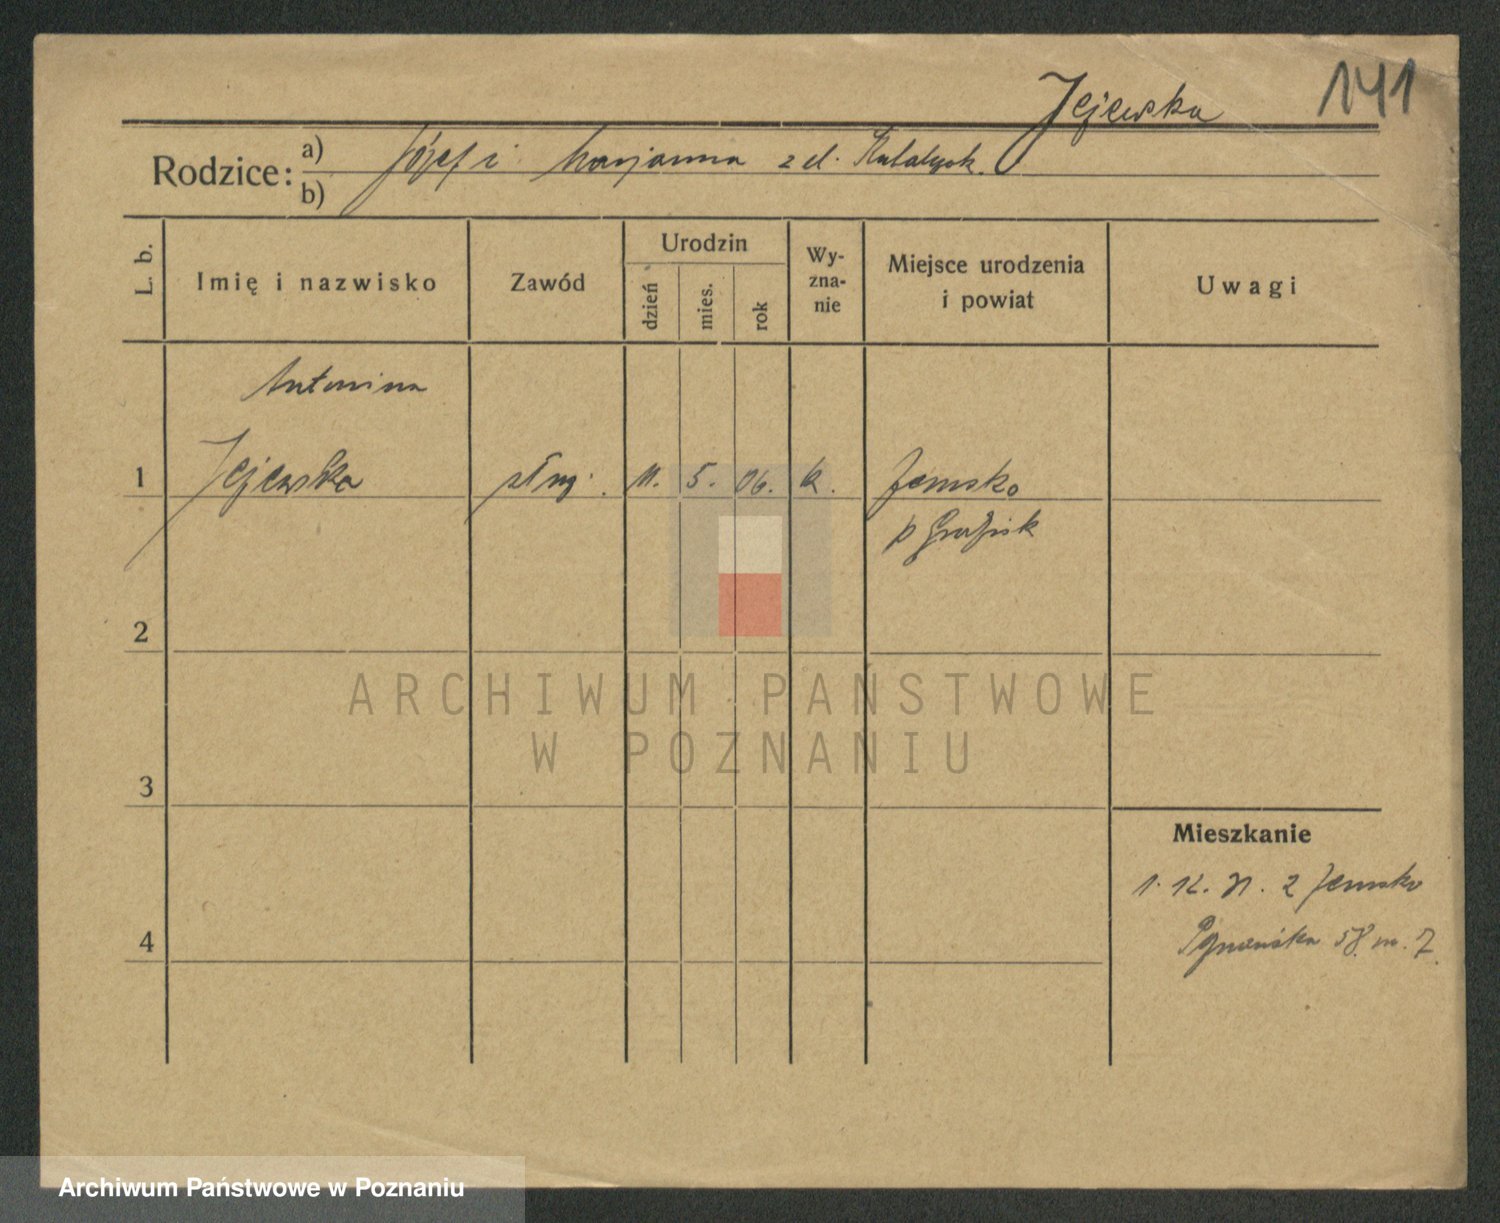 Jejewska
141
Rodzice:
a) Józef i Marjanna z d.
b)
L. b.
Imię i nazwisko
Zawód
Urodzin
dzień
mies.
rok
Wy-
zna-
nie
Miejsce urodzenia
i powiat
Uwagi
Antonina
1 Jejewska służ. 11. 5. 06. k. Jemsko
p
2
3
4
Mieszkanie
1. 12. 21. z Jemsko
58 m. 7.
ARCHIWUM PAŃSTWOWE
W POZNANIU
Archiwum Państwowe w Poznaniu